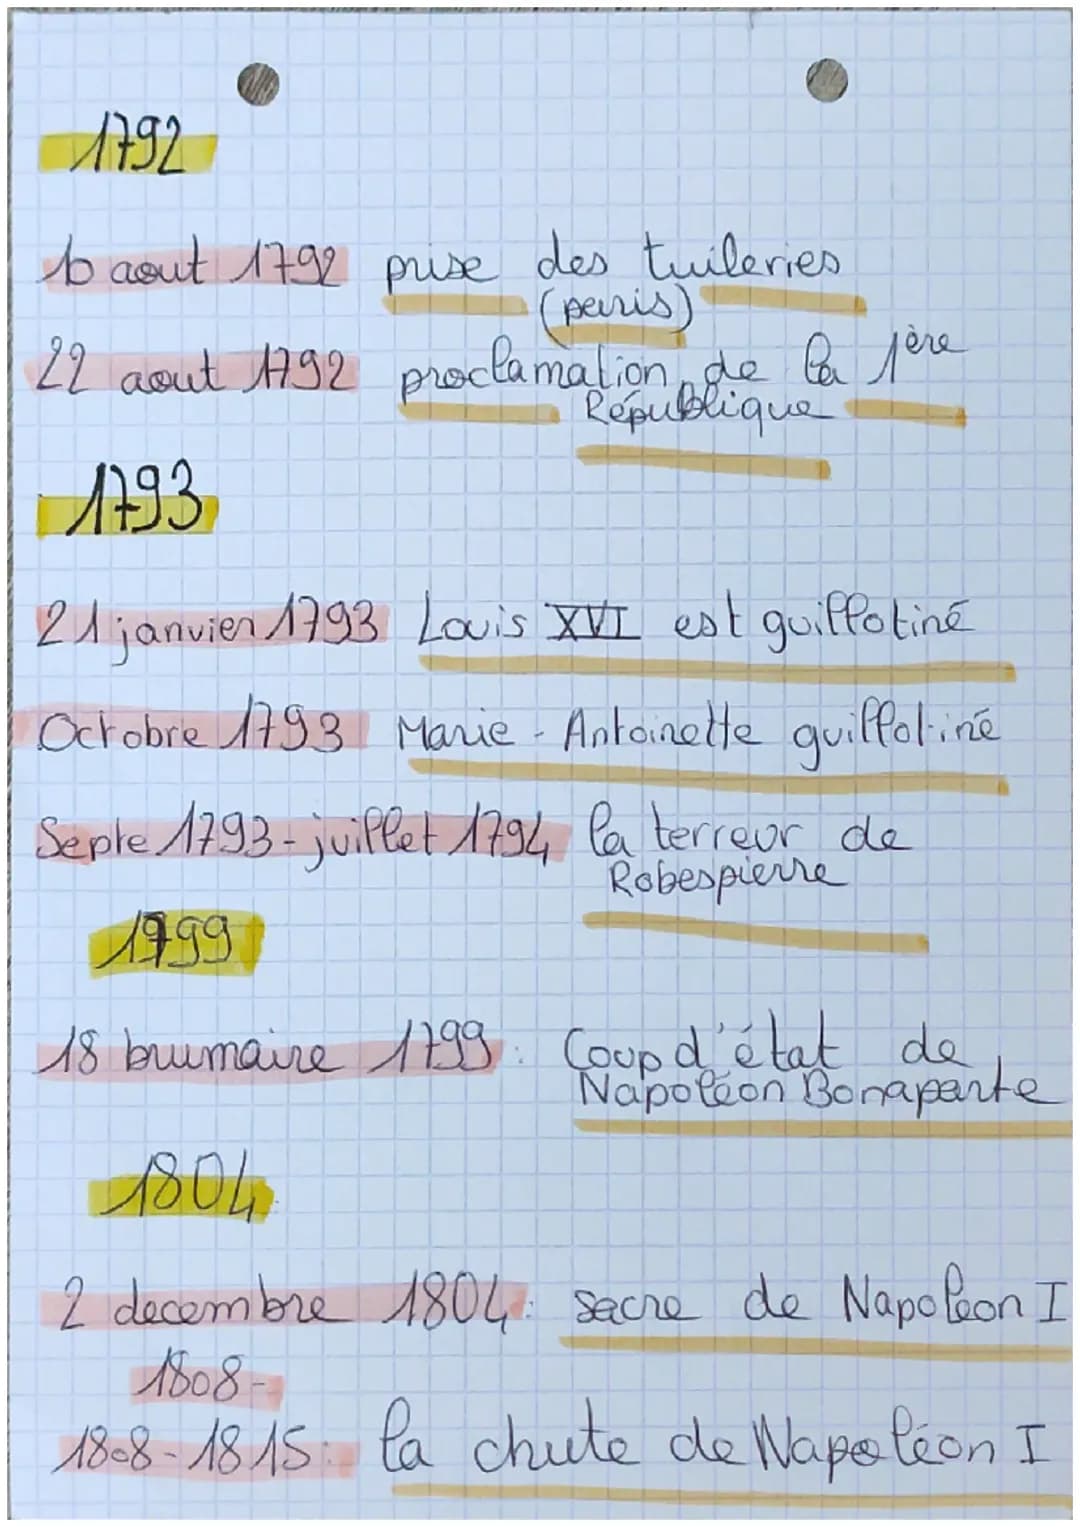 1792
10 aout 1792 prise des tuileries
(paris)
22 aout 1792 proclamation de la 1ère
République
1793
21 janvier 1793 Louis XVI est guillotiné
Octobre 1793 Marie-Antoinette guillotiné
Septe 1793-juillet 1794 la terreur de
Robespierre
1799
18 brumaire 1799: Coup d'état de
Napoléon Bonaparte
1804
2 decembre 1804: sacre de Napoléon I
1808-
1808-1815: la chute de Napoléon I